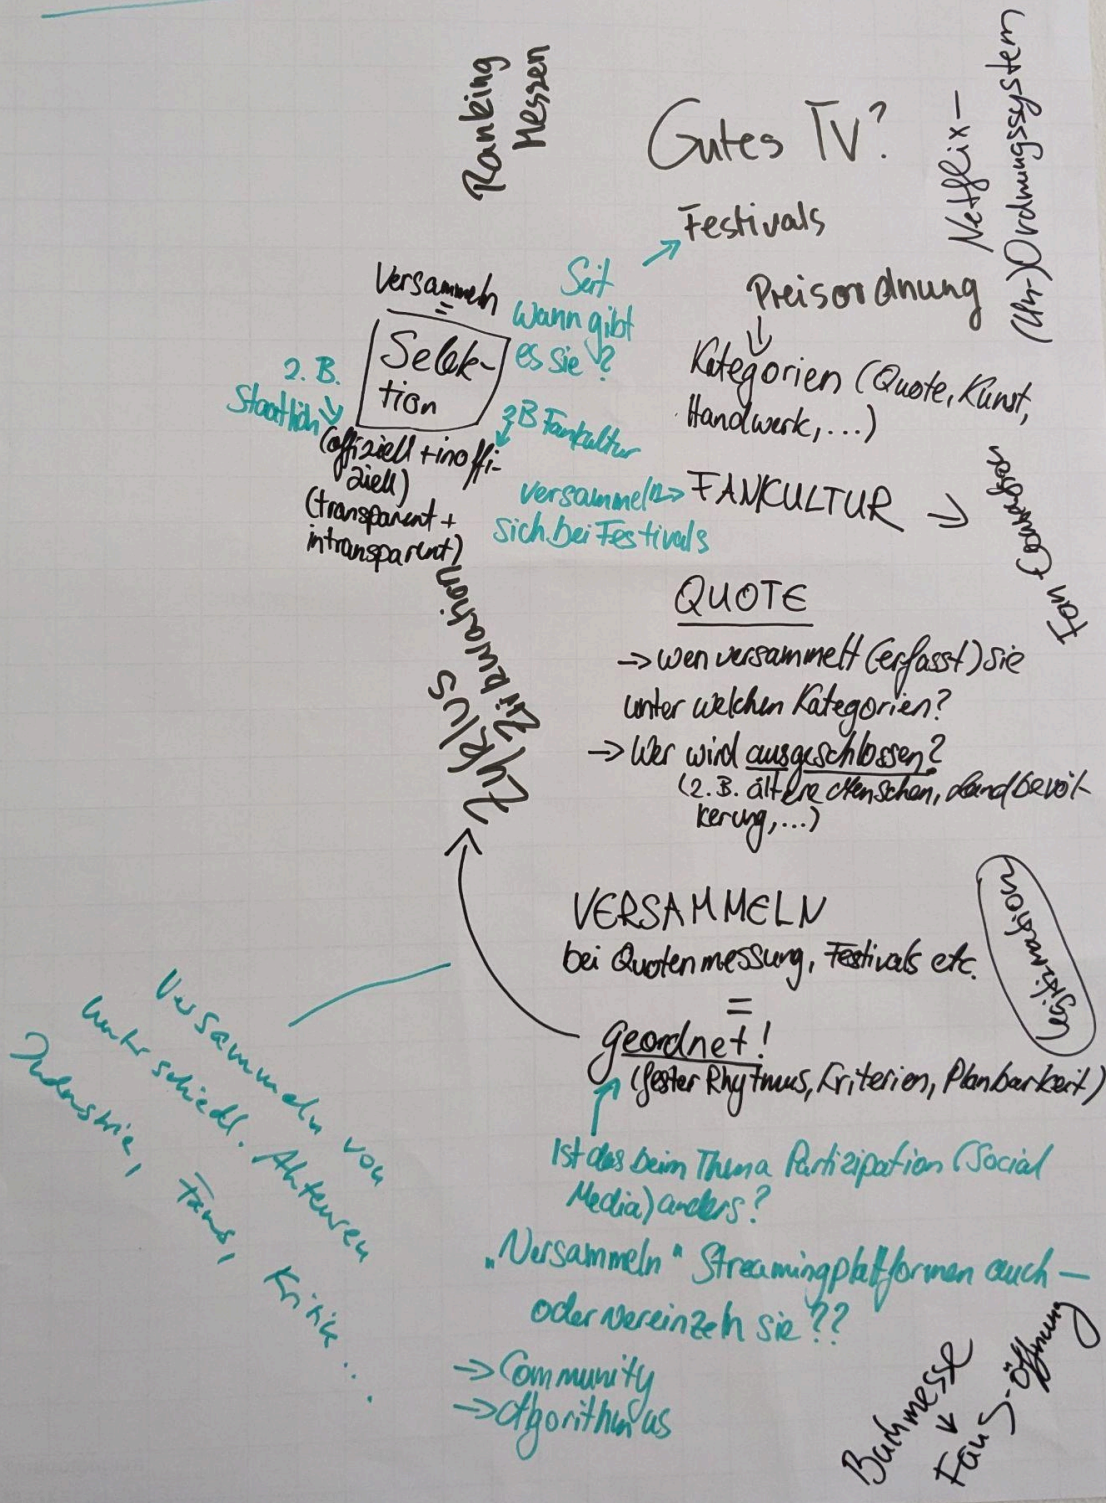 Ranking
Messen
Gutes TV?
Netflix –
(Un-)Ordnungssystem
Festivals
Versammeln
=
Selek-
tion
Seit
wann gibt
es sie?
Preisordnung
Kategorien (Quote, Kunst,
Handwerk, ...)
z. B.
Staatlich
zB Fankultur
(offiziell + inoffi-
ziell)
(transparent +
intransparent)
versammeln
sich bei Festivals
FANKULTUR
Fan Convention
Zyklus
Zirkulation
QUOTE
→ wen versammelt (erfasst) sie
unter welchen Kategorien?
→ Wer wird ausgeschlossen?
(z. B. ältere Menschen, Landbevöl-
kerung, ...)
VERSAMMELN
bei Quotenmessung, Festivals etc.
=
geordnet!
(fester Rhythmus, Kriterien, Planbarkeit)
Legitimation
Versammeln von
unterschiedl. Akteuren
Industrie, Fans, Kritik ...
Ist das beim Thema Partizipation (Social
Media) anders?
„Versammeln“ Streamingplattformen auch –
oder vereinzeln sie??
→ Community
→ Algorithmus
Buchmesse
Fans-Öffnung